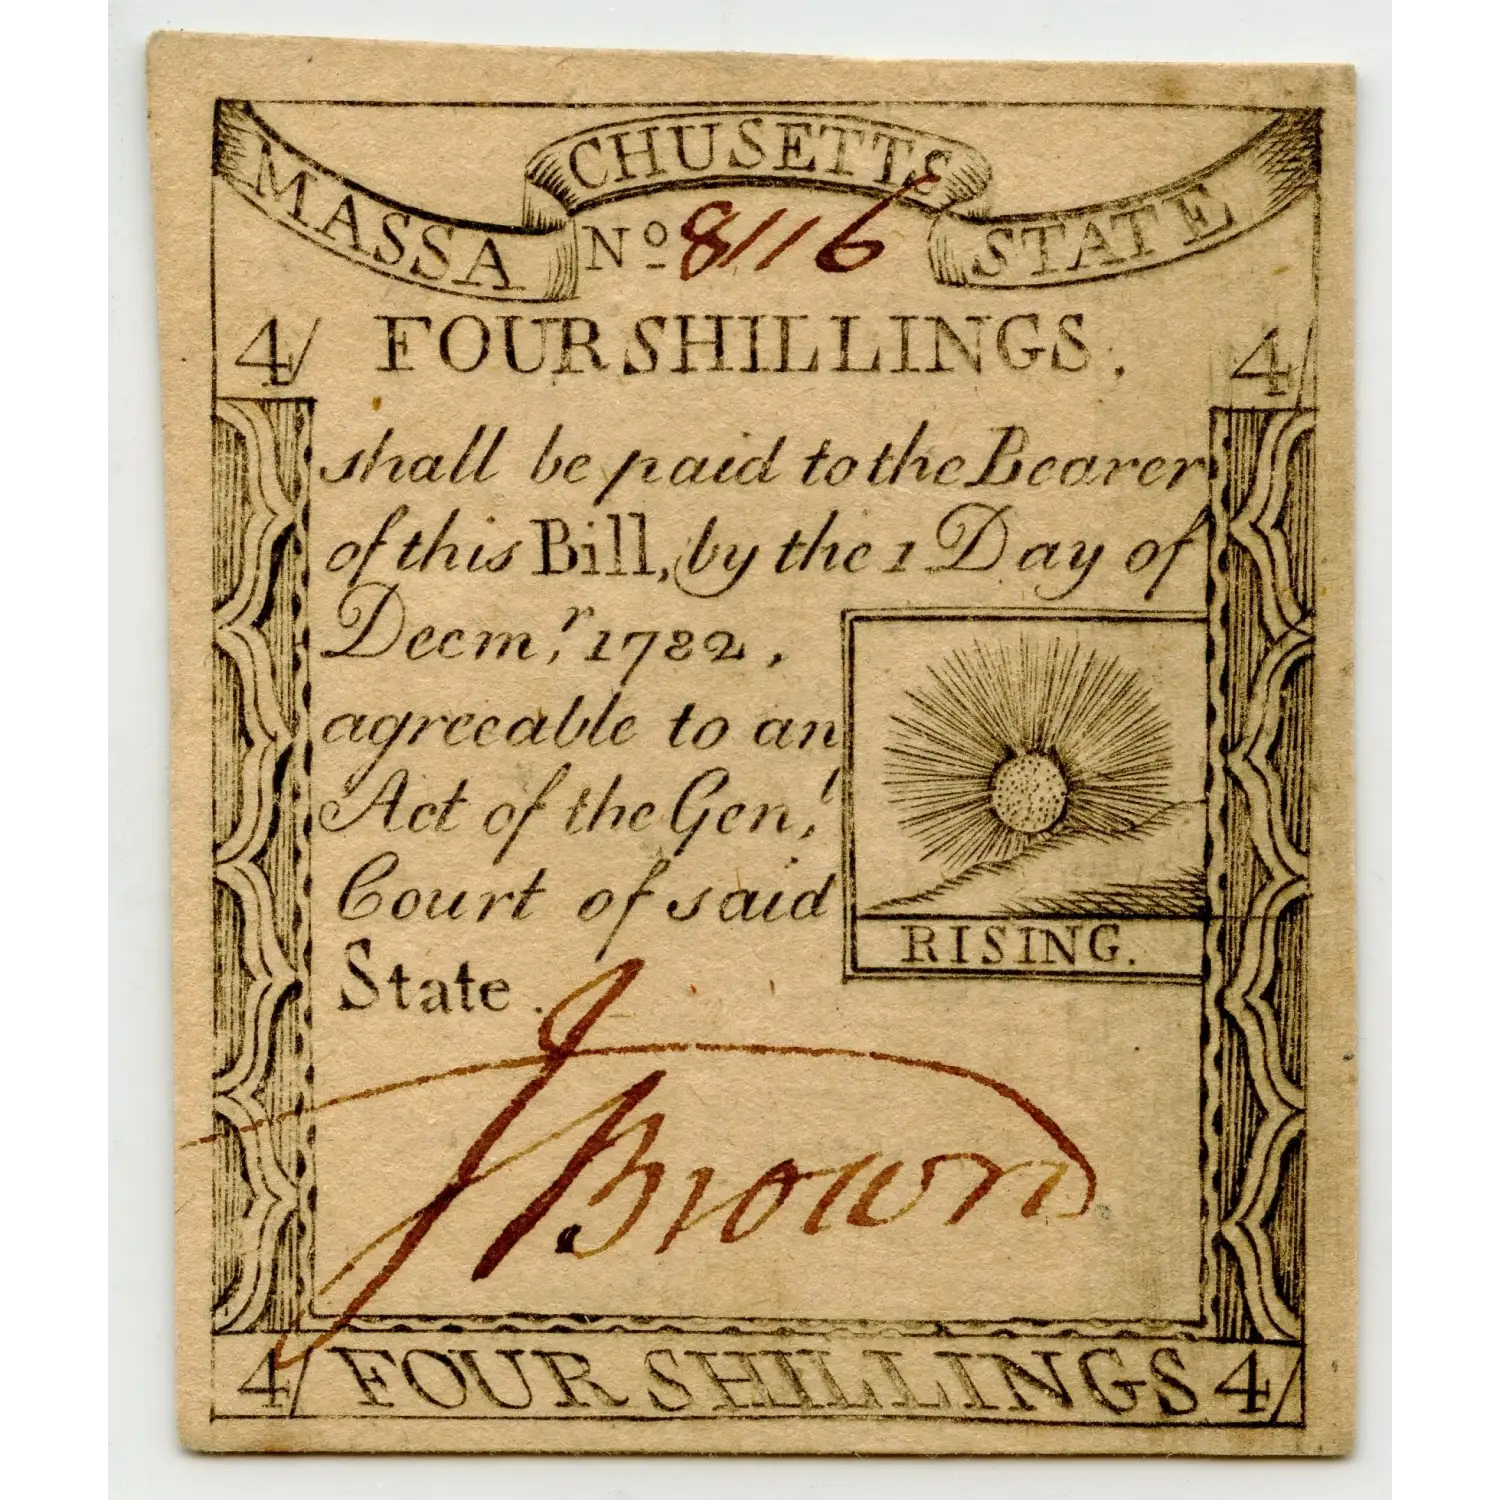 MASSACHUSETTS STATE
No 8116
4/ FOUR SHILLINGS. 4/
shall be paid to the Bearer
of this Bill, by the 1 Day of
Decm,r 1782,
agreeable to an
Act of the Gen,l
Court of said
State.
RISING.
J Brown
4/ FOUR SHILLINGS 4/